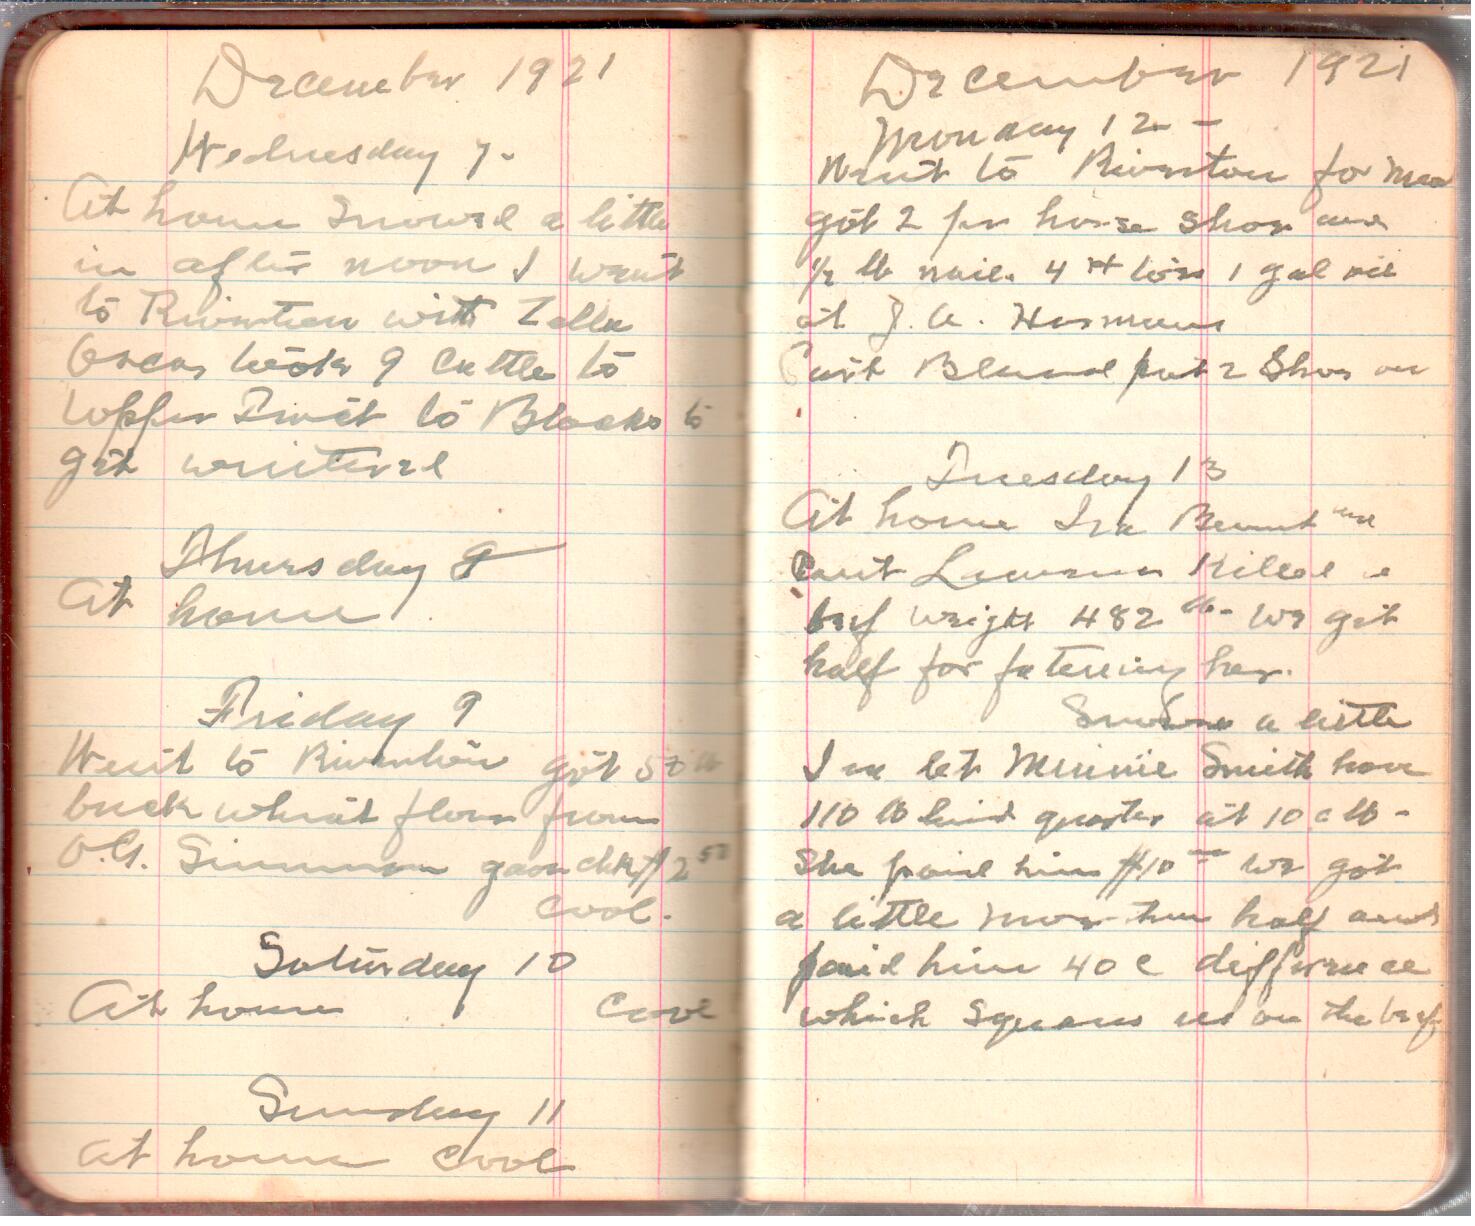 December 1921
Wednesday 7-
At home Snowed a little
in after noon I went
to Riverton with Zella
Oscar took 9 Cattle to
upper Twist to Blocks to
get wintered
Thursday 8
At home
Friday 9
Went to Riverton got 50 lb
buck wheat flour from
O.G. Simmon gave chk $2 50
cool.
Saturday 10
At home Cool
Sunday 11
at home cool
December 1921
Monday 12 -
Went to Riverton for
got 2 pr horse shoes and
1/2 lb nails 4 1 gal oil
at J. A. Hermans
Curt Bland put 2 Shoes on
Tuesday 13
At home Ira Bennet and
Curt Killed a
beef weight 482 lb- we get
half for fatening her.
Snowed a little
Ira let Minnie Smith have
110 lb hind quarter at 10 c lb-
She paid him $10 we got
a little more than half and
paid him 40 c difference
which Squares us on the beef